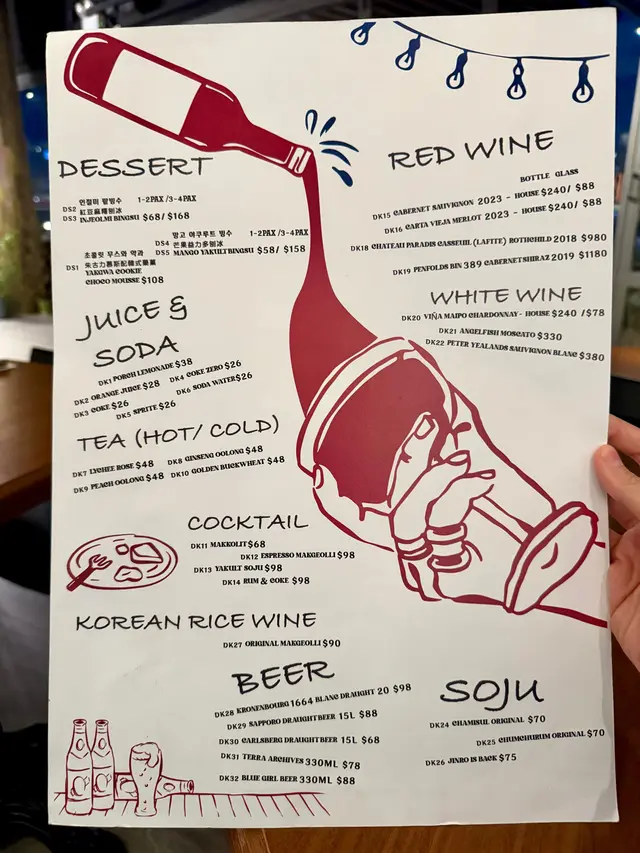 DESSERT
인절미 팥빙수 1-2PAX /3-4PAX
DS2 紅豆麻糬刨冰
DS3 INJEOLMI BINGSU $68/ $168
망고 야쿠루트 빙수 1-2PAX /3-4PAX
DS4 芒果益力多刨冰
DS5 MANGO YAKULT BINGSU $58/ $158
초콜릿 무스와 약과
DS1 朱古力慕斯配韓式藥菓
YAKGWA COOKIE
CHOCO MOUSSE $108
JUICE &
SODA
DK1 PORCH LEMONADE $38
DK2 ORANGE JUICE $28 DK4 COKE ZERO $26
DK3 COKE $26 DK6 SODA WATER $26
DK5 SPRITE $26
TEA (HOT/ COLD)
DK7 LYCHEE ROSE $48 DK8 GINSENG OOLONG $48
DK9 PEACH OOLONG $48 DK10 GOLDEN BUCKWHEAT $48
COCKTAIL
DK11 MAKKOLIT $68
DK12 ESPRESSO MAKGEOLLI $98
DK13 YAKULT SOJU $98
DK14 RUM & COKE $98
KOREAN RICE WINE
DK27 ORIGINAL MAKGEOLLI $90
BEER
DK28 KRONENBOURG 1664 BLANC DRAUGHT 20 $98
DK29 SAPPORO DRAUGHT BEER 15L $88
DK30 CARLSBERG DRAUGHT BEER 15L $68
DK31 TERRA ARCHIVES 330ML $78
DK32 BLUE GIRL BEER 330ML $88
RED WINE
BOTTLE GLASS
DK15 CABERNET SAUVIGNON 2023 - HOUSE $240/ $88
DK16 CARTA VIEJA MERLOT 2023 - HOUSE $240/ $88
DK18 CHATEAU PARADIS CASSEUIL (LAFITE) ROTHCHILD 2018 $980
DK19 PENFOLDS BIN 389 CABERNET SHIRAZ 2019 $1180
WHITE WINE
DK20 VIÑA MAIPO CHARDONNAY - HOUSE $240 /$78
DK21 ANGELFISH MOSCATO $330
DK22 PETER YEALANDS SAUVIGNON BLANC $380
SOJU
DK24 CHAMISUL ORIGINAL $70
DK25 CHUMCHURUM ORIGINAL $70
DK26 JINRO IS BACK $75